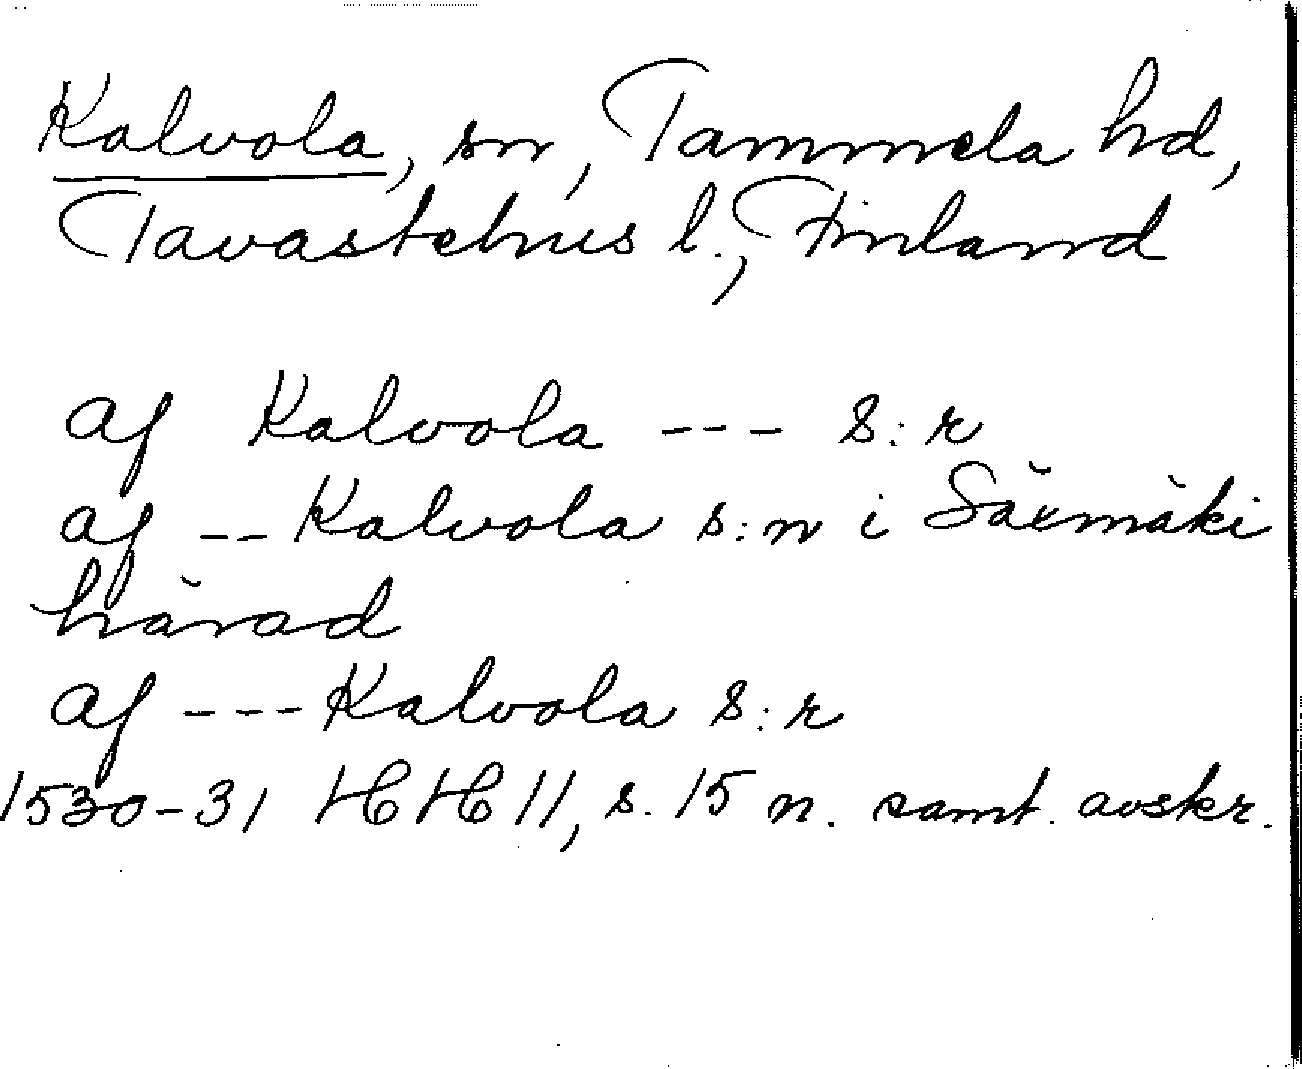 Kalvola, sn, Tammela hd,
Tavastehus l., Finland
af Kalvola --- s:r
af -- Kalvola s:n i Säxmäki
härad
af --- Kalvola s:r
1530-31 HH 11, s. 15 n. samt. avskr.